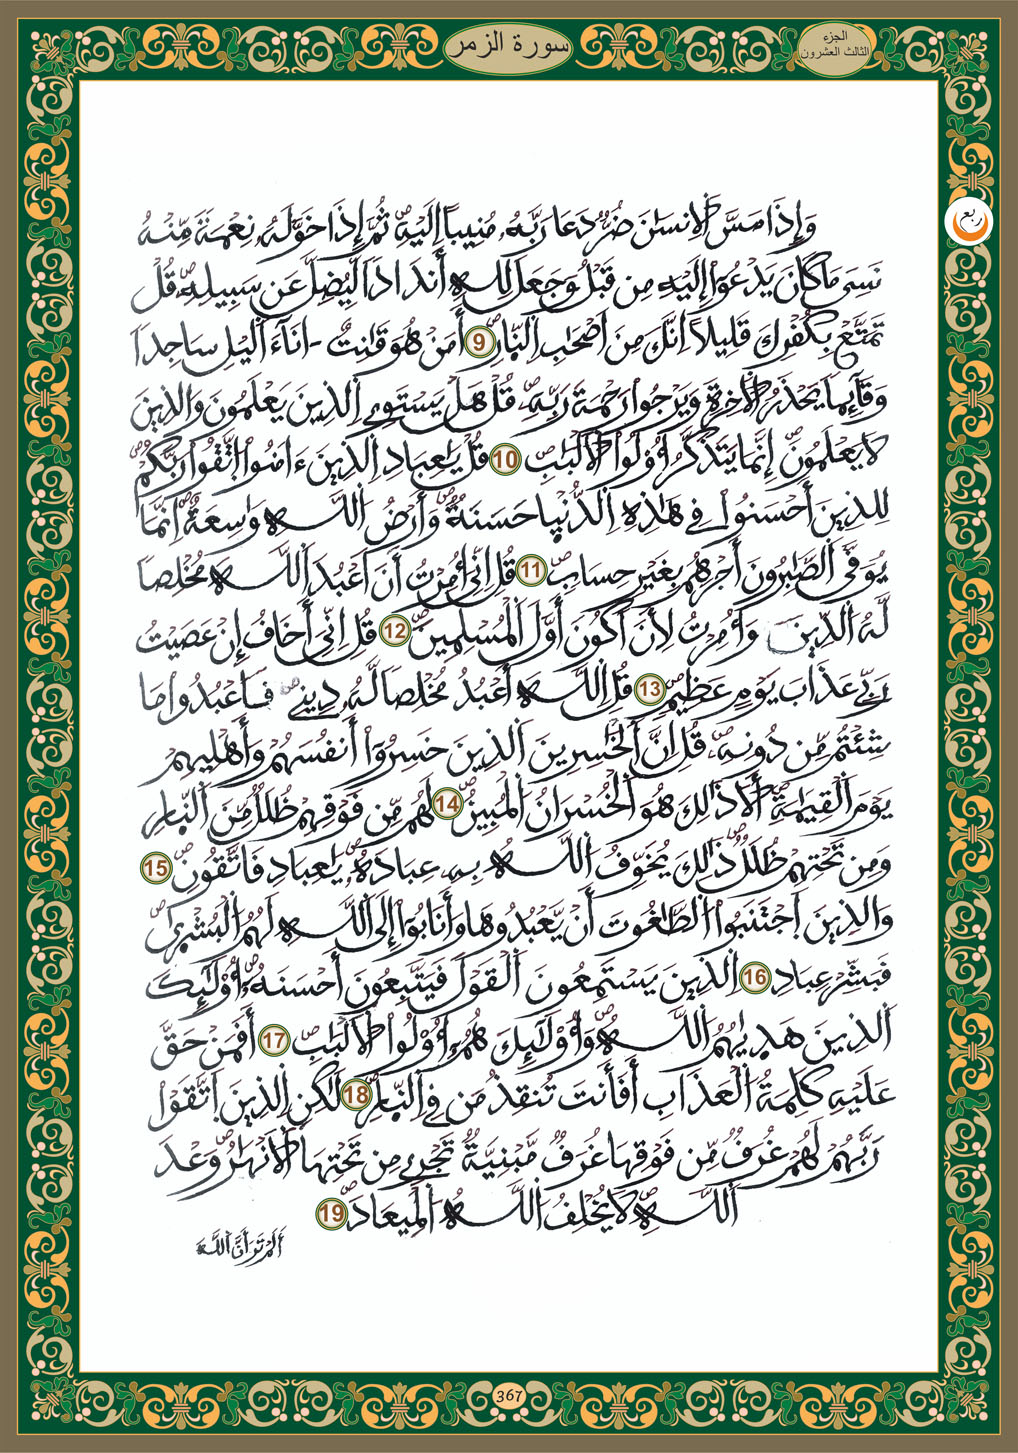 سورة الزمر
الجزء
الثالث العشرون
ربع
وَإِذَا مَسَّ اَلِانسَٰنَ ضُرٌّ دَعَا رَبَّهُۥ مُنِيباً إِلَيْهِ ثُمَّ إِذَا خَوَّلَهُۥ نِعْمَةً مِّنْهُ
نَسِيَ مَا كَانَ يَدْعُوٓاْ إِلَيْهِ مِن قَبْلُ وَجَعَلَ لِلهِ أَندَاداً لِّيُضِلَّ عَن سَبِيلِهِۦ قُلْ
تَمَتَّعْ بِكُفْرِكَ قَلِيلاً اِنَّكَ مِنَ اَصْحَٰبِ اِ۬لنّ۪ارِ 9 أَمَنْ هُوَ قَٰنِتٌ ـ اٰنَآءَ اَ۬ليْلِ سَاجِداً
وَقَآئِماً يَحْذَرُ اُ۬لَاخِرَةَ وَيَرْجُواْ رَحْمَةَ رَبِّهِۦ قُلْ هَلْ يَسْتَوِے اِ۬لذِينَ يَعْلَمُونَ وَالذِينَ
لَا يَعْلَمُونَ إِنَّمَا يَتَذَكَّرُ أُوْلُواْ اُ۬لَالْبَٰبِ 10 قُلْ يَٰعِبَادِ اِ۬لذِينَ ءَامَنُواْ اُ۪تَّقُواْ رَبَّكُمْ
لِلذِينَ أَحْسَنُواْ فِے هَٰذِهِ اِ۬لدُّنْي۪ا حَسَنَةٌ وَأَرْضُ اُ۬للَّهِ وَٰسِعَةٌ اِنَّمَا
يُوَفَّى اَ۬لصَّٰبِرُونَ أَجْرَهُم بِغَيْرِ حِسَابٍ 11 قُلِ اِنِّيَ أُمِرْتُ أَنَ اَعْبُدَ اَ۬للَّهَ مُخْلِصاً
لَّهُ اُ۬لدِّينَ وَأُمِرْتُ لِأَنَ اَكُونَ أَوَّلَ اَ۬لْمُسْلِمِينَ 12 قُلِ اِنِّيَ أَخَافُ إِنْ عَصَيْتُ
رَبِّے عَذَابَ يَوْمٍ عَظِيمٍ 13 قُلِ اِ۬للَّهَ أَعْبُدُ مُخْلِصاً لَّهُۥ دِينِے فَاعْبُدُواْ مَا
شِئْتُم مِّن دُونِهِۦ قُلِ اِنَّ اَ۬لْخَٰسِرِينَ اَ۬لذِينَ خَسِرُوٓاْ أَنفُسَهُمْ وَأَهْلِيهِمْ
يَوْمَ اَ۬لْقِيَٰمَةِ أَلَا ذَٰلِكَ هُوَ اَ۬لْخُسْرَانُ اُ۬لْمُبِينُ 14 لَهُم مِّن فَوْقِهِمْ ظُلَلٌ مِّنَ اَ۬لنّ۪ارِ
وَمِن تَحْتِهِمْ ظُلَلٌ ذَٰلِكَ يُخَوِّفُ اُ۬للَّهُ بِهِۦ عِبَادَهُۥ يَٰعِبَادِ فَاتَّقُونِ 15
وَالذِينَ اَ۪جْتَنَبُواْ اُ۬لطَّٰغُوتَ أَنْ يَّعْبُدُوهَا وَأَنَابُوٓاْ إِلَى اَ۬للَّهِ لَهُمُ اُ۬لْبُشْر۪ىٰ
فَبَشِّرْ عِبَادِ 16 اِ۬لذِينَ يَسْتَمِعُونَ اَ۬لْقَوْلَ فَيَتَّبِعُونَ أَحْسَنَهُۥ أُوْلَٰٓئِكَ
اَ۬لذِينَ هَد۪يٰهُمُ اُ۬للَّهُ وَأُوْلَٰٓئِكَ هُمُۥٓ أُوْلُواْ اُ۬لَالْبَٰبِ 17 أَفَمَنْ حَقَّ
عَلَيْهِ كَلِمَةُ اُ۬لْعَذَابِ أَفَأَنتَ تُنقِذُ مَن فِے اِ۬لنّ۪ارِ 18 لَٰكِنِ اِ۬لذِينَ اَ۪تَّقَوْاْ
رَبَّهُمْ لَهُمْ غُرَفٌ مِّن فَوْقِهَا غُرَفٌ مَّبْنِيَّةٌ تَجْرِے مِن تَحْتِهَا اَ۬لَانْهَٰرُ وَعْدَ
اَ۬للَّهِ لَا يُخْلِفُ اُ۬للَّهُ اُ۬لْمِيعَادَ 19
أَلَمْ تَرَ أَنَّ اَ۬للَّهَ
367